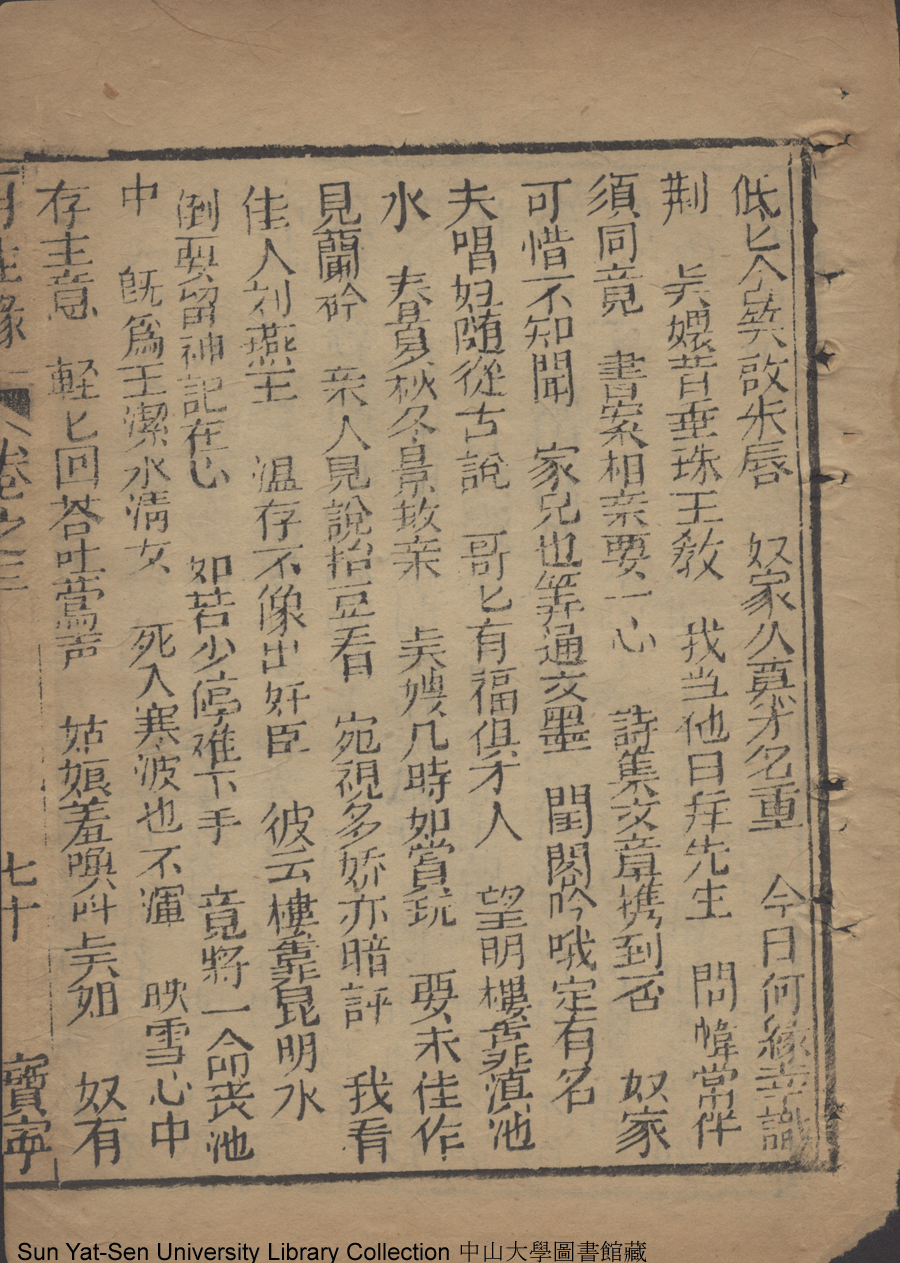 低匕今笑啟朱唇 奴家久莫才名重 今日何緣幸識
荆 吴嬛昔垂珠王教 我当他日拜先生 問幃常伴
須同竟 書案相亲要一心 詩集文章携到否 奴家
可惜不知聞 家兄也筭通文墨 閨閣吟哦定有名
夫唱妇随從古說 哥匕有福俱才人 望明樓靠滇池
水 春夏秋冬景致亲 吴嫂几時如賞玩 要求佳作
見蘭衿 亲人見說抬豆看 宛視多娇亦暗評 我看
佳人刘燕王 温存不像出奸臣 彼云樓靠昆明水
倒要留神記在心 如若少停难下手 竟將一命丧池
中 既爲王潔水清女 死入寒波也不渾 映雪心中
存主意 軽匕回荅吐鶯声 姑娘羞喚叫吴如 奴有
再生緣 卷之三 七十 寶寧
Sun Yat-Sen University Library Collection 中山大學圖書館藏